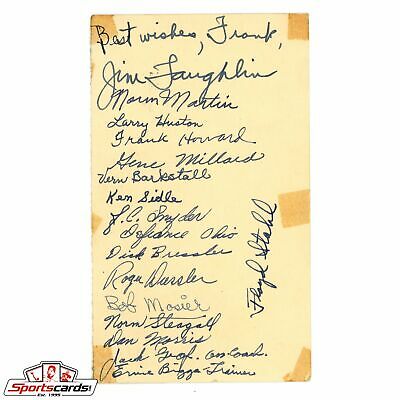 Best wishes, Frank,
Jim Laughlin
Norm Martin
Larry Huston
Frank Howard
Gene Millard
Vern Barkstall
Ken Sidle
L.C. Snyder
Defiance Ohio
Dick Bressler
Roger Duesler
Bob Mosier
Norm Steagall
Dan Morris
Jack Graf. ass. coach.
Ernie Biggs Trainer
Floyd Stahl
Sportscards
Est. 1995